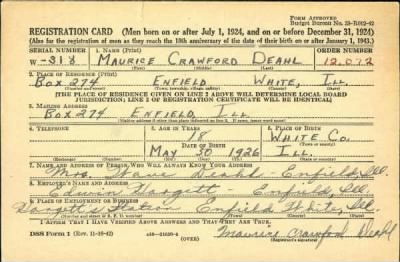 FORM APPROVED
Budget Bureau No. 33-R002-42
REGISTRATION CARD (Men born on or after July 1, 1924, and on or before December 31, 1926)
(Also for the registration of men as they reach the 18th anniversary of the date of their birth on or after January 1, 1943.)
SERIAL NUMBER 1. NAME (Print) ORDER NUMBER
W-318 MAURICE CRAWFORD DEAHL 12,072
(First) (Middle) (Last)
2. PLACE OF RESIDENCE (Print)
BOX 274 ENFIELD WHITE, ILL.
[THE PLACE OF RESIDENCE GIVEN ON LINE 2 ABOVE WILL DETERMINE LOCAL BOARD
JURISDICTION; LINE 2 OF REGISTRATION CERTIFICATE WILL BE IDENTICAL]
3. MAILING ADDRESS
BOX 274 ENFIELD, ILL.
4. TELEPHONE 5. AGE IN YEARS 6. PLACE OF BIRTH
18 WHITE CO.
DATE OF BIRTH
MAY 30 1926 ILL.
7. NAME AND ADDRESS OF PERSON WHO WILL ALWAYS KNOW YOUR ADDRESS
Mrs. Deahl - Enfield, Ill.
8. EMPLOYER'S NAME AND ADDRESS
Edwin Hargett - Enfield, Ill.
9. PLACE OF EMPLOYMENT OR BUSINESS
Hargett's Station Enfield White, Ill.
I AFFIRM THAT I HAVE VERIFIED ABOVE ANSWERS AND THAT THEY ARE TRUE.
DSS Form 1 (Rev. 11-16-42) (OVER) Maurice Crawford Deahl
(Registrant's signature)